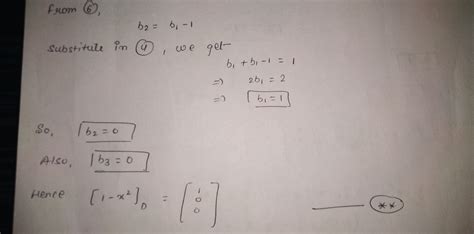 From ⑥,
b₂ = b₁ - 1
Substitute in ④, we get
b₁ + b₁ - 1 = 1
=> 2b₁ = 2
=> b₁ = 1
So, b₂ = 0
Also, b₃ = 0
Hence [1-x²]_D = [1 0 0] ——— (**)